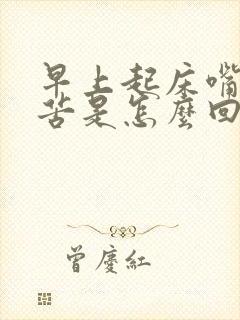 早上起床嘴
苦是怎麼回
曾慶紅